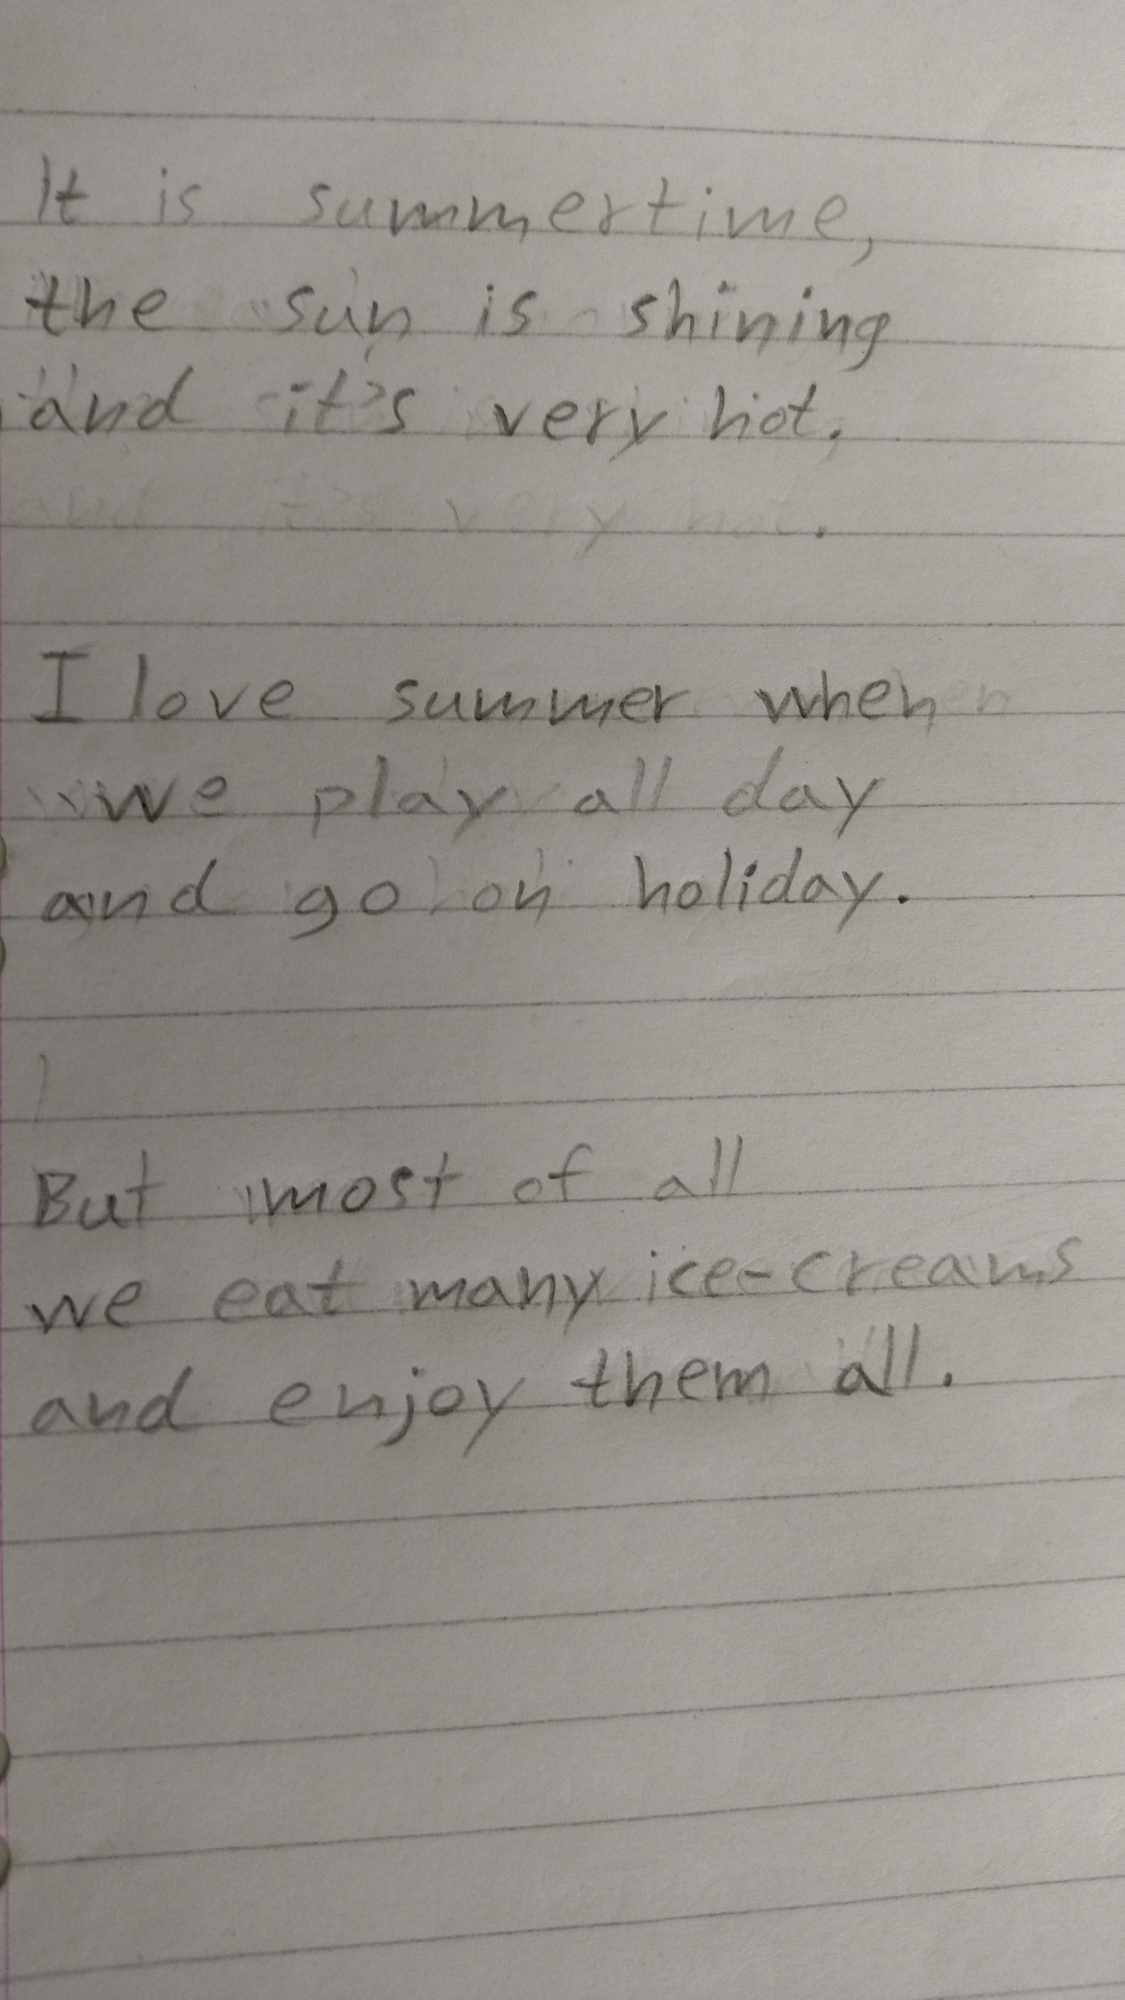 It is summertime,
the sun is shining
and it's very hot.
and it's very hot.
I love summer when
we play all day
and go on holiday.
But most of all
we eat many ice-creams
and enjoy them all.